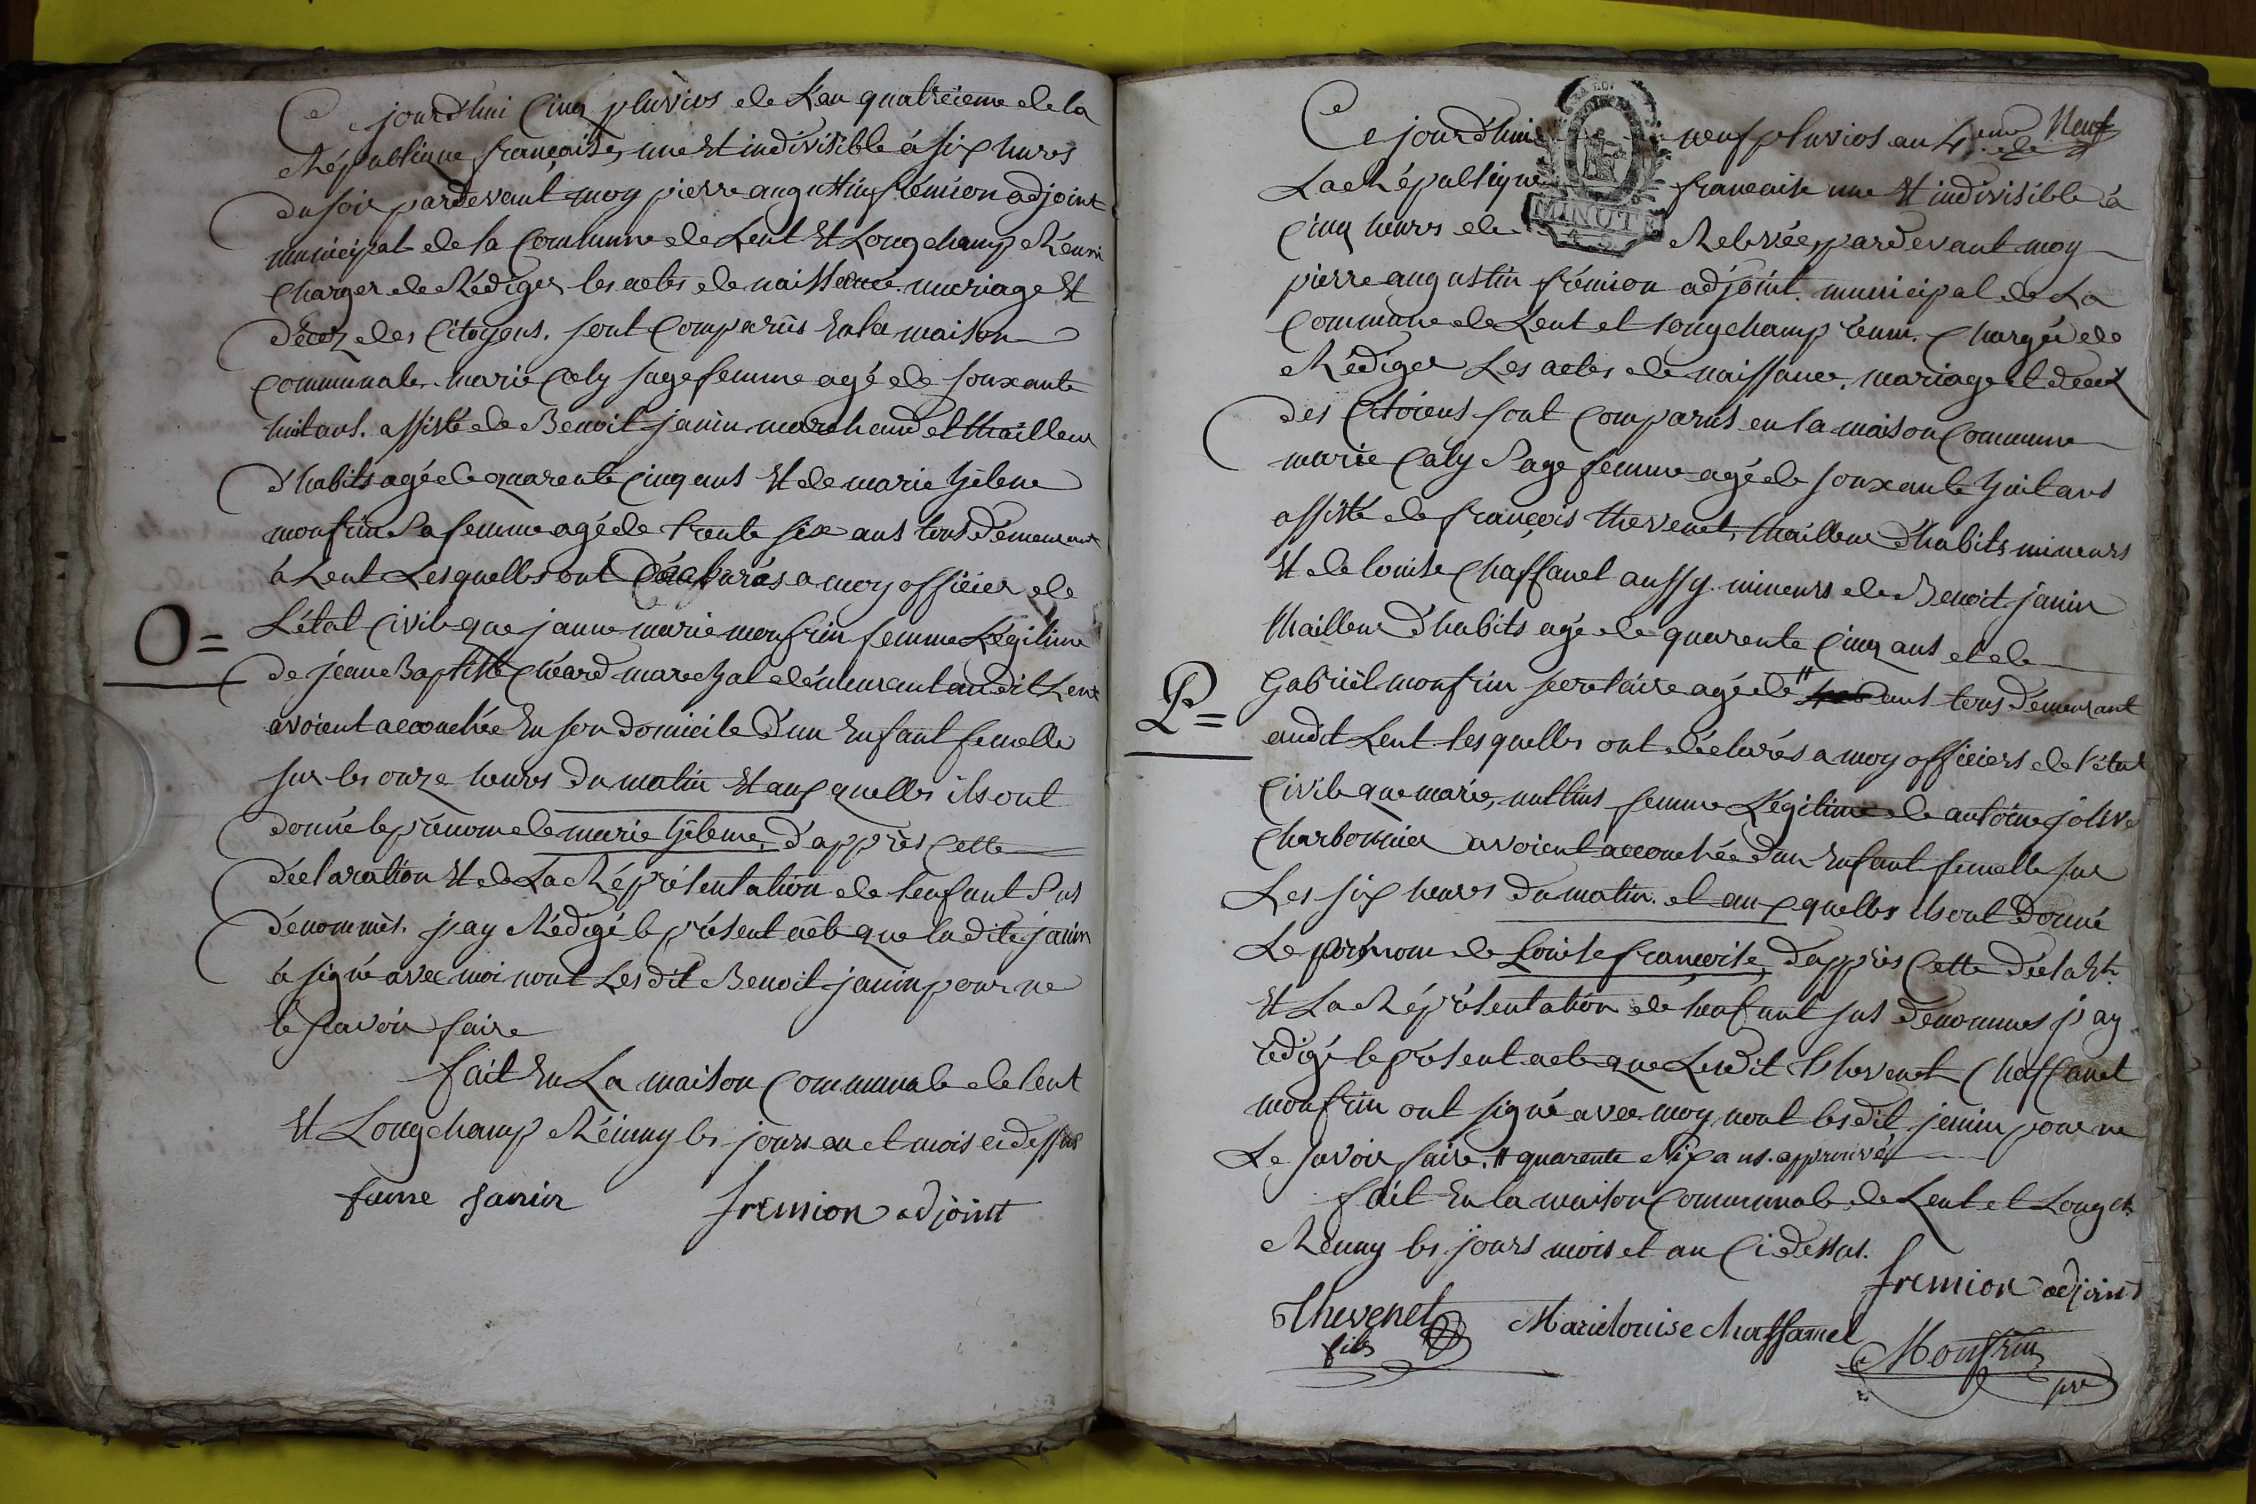 Ce jourdhui Cinq pluvios de L'an quatreieme de la
République française, une et indivisible à six hures
du soir pardevant moy pierre augustin frémion adjoint
municipal de la Commune de Lent et Longchamp Réuni
Charger de Rédiger les actes de naissance mariage et
décez des Citoyens. sont Comparûs En la maison
Communale. marie Caly sage femme agé de souxante
huit ans. assisté de Benoit janin marchand et thailleur
d'habits agé de quarente Cinq ans et de marie hélene
monfrin Sa femme agé de trente six ans tous démeurant
à Lent Lesquelles ont Déclarés a moy officier de
L'état Civile que janne marie monfrin femme Légitime
de jéane Baptiste Chéard marechal démeurant audit Lent
avoient accouchée En son domicile d'un Enfant femelle
sur les onze heurs Du matin et aux quelles ils ont
donné le prénom de marie hélene, d'après Cette
déclaration et de La Réprésentation de lenfant Sus
dénommés. j'ay Rédigé le présent acte que ladite janin
à signé avec moi nont Lesdit Benoit janin pour ne
le scavoir faire
fait En La maison Communale de lent
et Longchamp Réuny les jours an et mois ci dessus
fame Janin fremion adjoint
O=
Ce jourd'huie neuf pluvios an 4.eme de Neuf
La République française une et indivisible à
Cinq heurs de Relevée, pardevant moy
pierre augustin frémion adjoint municipal de La
Commune de Lent et longchamp réuni. Chargé de
Rédiger Les actes de naissance, mariage et décéz
des Citoiens sont Comparus en la maison Commune
marie Caly Sage femme agé de souxante huit ans
assisté de françois thevenet, thailleur d'habits mineurs
et de louise Chaffanel aussy mineurs de Benoit janin
thailleur d'habits agé de quarente Cinq ans et de
Gabriël monfrin sécretaire agé de # ans tous démeurant
audit Lent lesquelles ont déclarés a moy officiers de l'état
Civile que marie, femme Légitime de antoine jolive
Charbonnier avoient accouchée d'un Enfant femelle sur
Les six heurs du matin. et aux quelles ils ont Donné
Le prénom de Louise françoise, d'apprés Cette déclaron
et La Réprésentation de lenfant sus dénommes j'ay
rédigé le présent acte que Lesdit thevenet Chaffanel
monfrin ont signé avec moy nont lesdit janin pour ne
Le savoir faire. # quarente six ans. approuvé
P=
fait En la maison Communale de Lent et Longch
Réuny les jours mois et an Ci dessus.
fremion adjoint
Thevenet Marie louise Chaffanel
fils Monfrin
MINUTE